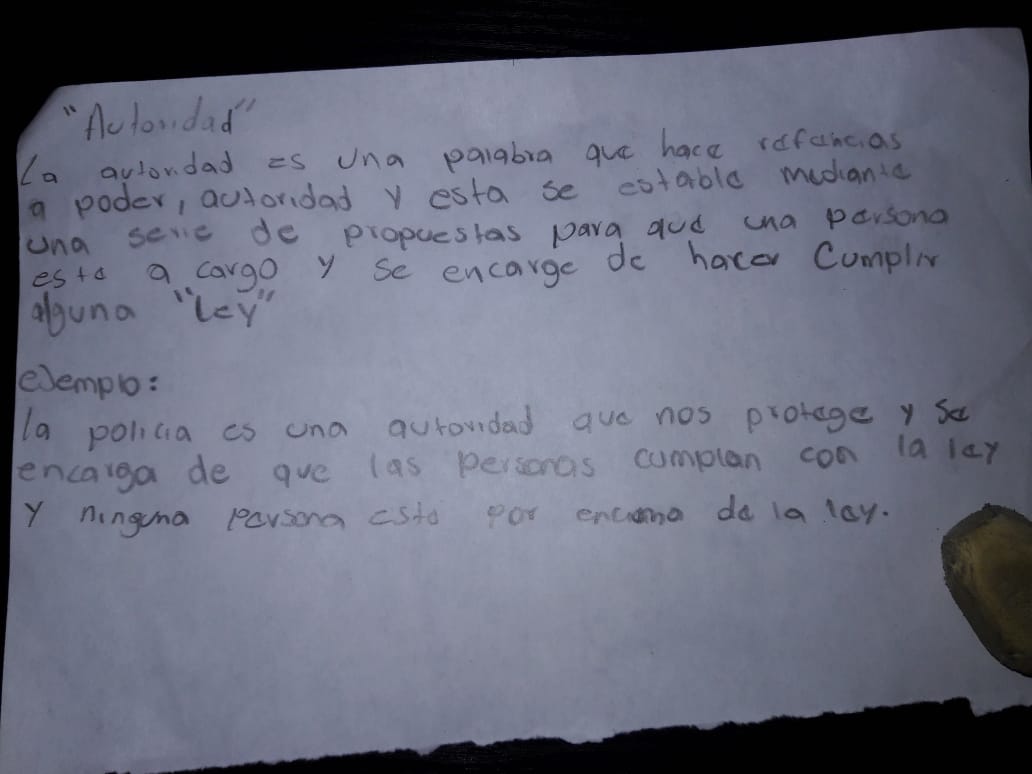 "Autoridad"
La autoridad es una palabra que hace refencias
a poder, autoridad y esta se estable mediante
una serie de propuestas para que una persona
este a cargo y se encarge de hacer Cumplir
alguna "Ley"
eJemplo:
la policia es una autoridad que nos protege y se
encarga de que las personas cumplan con la ley
y ninguna persona esta por encima de la ley.